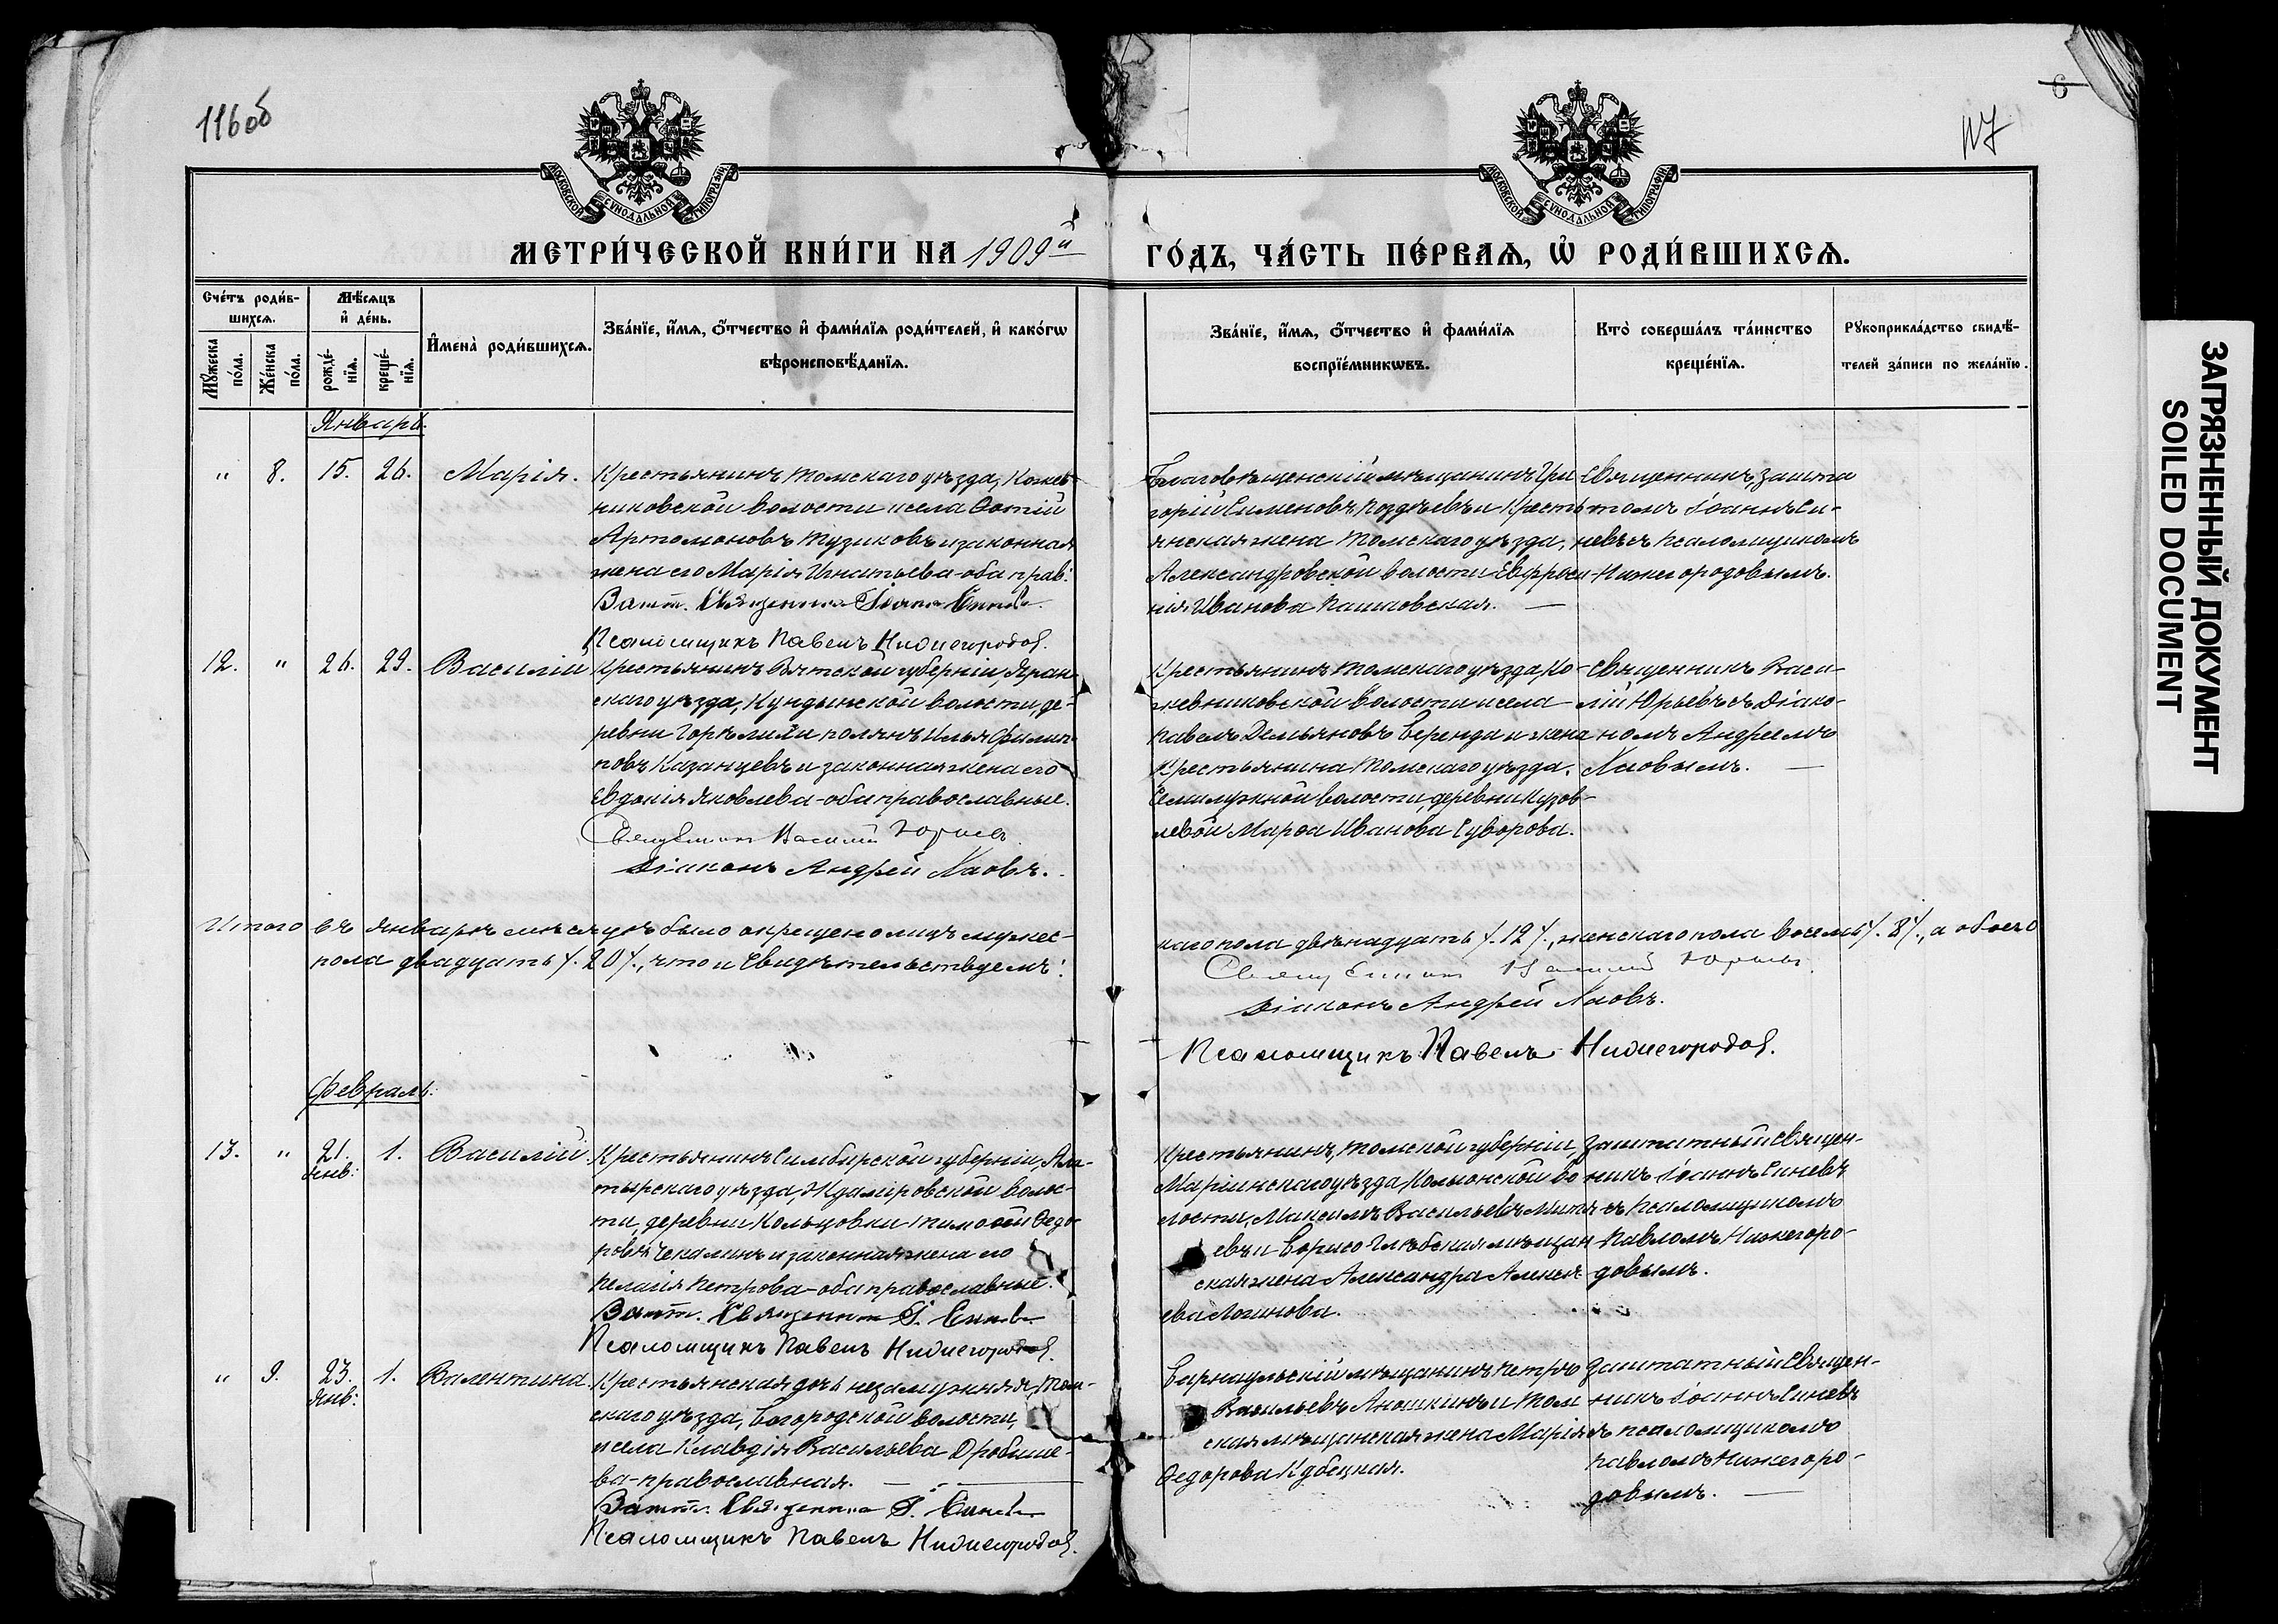 116об
117
6
МОСКОВСКОЙ СУНОДАЛЬНОЙ ТИПОГРАФІИ
МОСКОВСКОЙ СУНОДАЛЬНОЙ ТИПОГРАФІИ
МЕТРИ́ЧЕСКОЙ КНИ́ГИ НА 1909й
ГО́ДЪ, ЧА́СТЬ ПЕ́РВАѦ, Ѡ҆ РОДИ́ВШИХСѦ.
Сче́тъ роди́в-
шихсѧ.
Мѣ́сѧцъ
и҆ де́нь.
Мꙋ́жеска по́ла.
Же́нска по́ла.
рожде́-нїѧ.
креще́-нїѧ.
И҆мена̀ роди́вшихсѧ.
Зва́нїе, и҆́мѧ, ѻ҆́тчество и҆ фами́лїѧ роди́телей, и҆ како́гѡ
вѣроисповѣ́данїѧ.
Зва́нїе, и҆́мѧ, ѻ҆́тчество и҆ фами́лїѧ
воспрїе́мникѡвъ.
Кто̀ соверша́лъ та́инство
креще́нїѧ.
Рꙋкоприкла́дство свидѣ́-
телей за́писи по жела́нїю.
Январь.
" 8. 15. 26. Марія.
Крестьянинъ Томскаго уѣзда, Кожев-
никовской волости и села Фотій
Артомоновъ Тузиковъ и законная
жена его Марія Игнатьева-оба прав:
Зашт. Священникъ Іоаннъ Синевъ
Псаломщикъ Павелъ Нижегородов.
Благовѣщенскій мѣщанинъ Гри
горій Сименовъ Поздѣевъ и Кресть
янская жена Томскаго уѣзда,
Александровской волости Евфроси-
нія Иванова Пашковская. —
Священникъ, зашта
томъ Іоаннъ Си-
невъ съ псаломщикомъ
Нижегородовымъ.
12. " 26. 29. Василій
Крестьянинъ Вятской губерніи, Яран-
скаго уѣзда, Кундышской волости, де-
ревни Горѣлыхъ полянъ Илья Филип-
повъ Казанцевъ и законная жена его
Евдокія Яковлева-оба православные.
Священникъ Василій Юрьевъ
Діаконъ Андрей Хаовъ.
Крестьянинъ Томскаго уѣзда, Ко-
жевниковской волости и села
Павелъ Демьяновъ Беренда и жена
Крестьянина Томскаго уѣзда,
Семилужной волости, деревни Кузов-
левой Марфа Иванова Суворова.
Священникъ Васи-
лій Юрьевъ съ Діако-
номъ Андреемъ
Хаовымъ. —
Итого въ январѣ мѣсяцѣ было окрещено лицъ мужес-
каго пола двѣнадцать /. 12 /., женскаго пола восемь /. 8 /., а обоего
пола двадцать /. 20 /., что и свидѣтельствуемъ:
Священникъ Василій Юрьевъ.
Діаконъ Андрей Хаовъ.
Псаломщикъ Павелъ Нижегородов.
Февраль.
13. " 21. янв: 1. Василій.
Крестьянинъ Симбирской губерніи, Ала-
тырскаго уѣзда, Ждамировской волос-
ти, деревни Кольцовки Тимофей Федо-
ровъ Чекалинъ и законная жена его
Пелагія Петрова-оба православные.
Зашт. Священникъ І. Синевъ
Псаломщикъ Павелъ Нижегородов.
Крестьянинъ, Томской губерніи,
Маріинскаго уѣзда, Колыонской во
лости, Максимъ Васильевъ Митя-
евъ и Борисо-Глѣбская мѣщан
ская жена Александра Алексѣ
ева Логинова.
Заштатный Священ-
никъ Іоаннъ Синевъ
съ псаломщикомъ
Павломъ Нижегоро-
довымъ.
" 9. 23. янв: 1. Валентина.
Крестьянская дочь незамужняя, Том-
скаго уѣзда, Богородской волости,
и села Клавдія Васильева Дробыше-
ва-православная. —
Зашт. Священникъ І. Синевъ
Псаломщикъ Павелъ Нижегородов.
Барнаульскій мѣщанинъ Петръ
Васильевъ Аношкинъ и Том
ская мѣщанская жена Марія
Федорова Кубецкая.
Заштатный Священ-
никъ Іоаннъ Синевъ
съ псаломщикомъ
Павломъ Нижегоро-
довымъ. —
ЗАГРЯЗНЕННЫЙ ДОКУМЕНТ
SOILED DOCUMENT